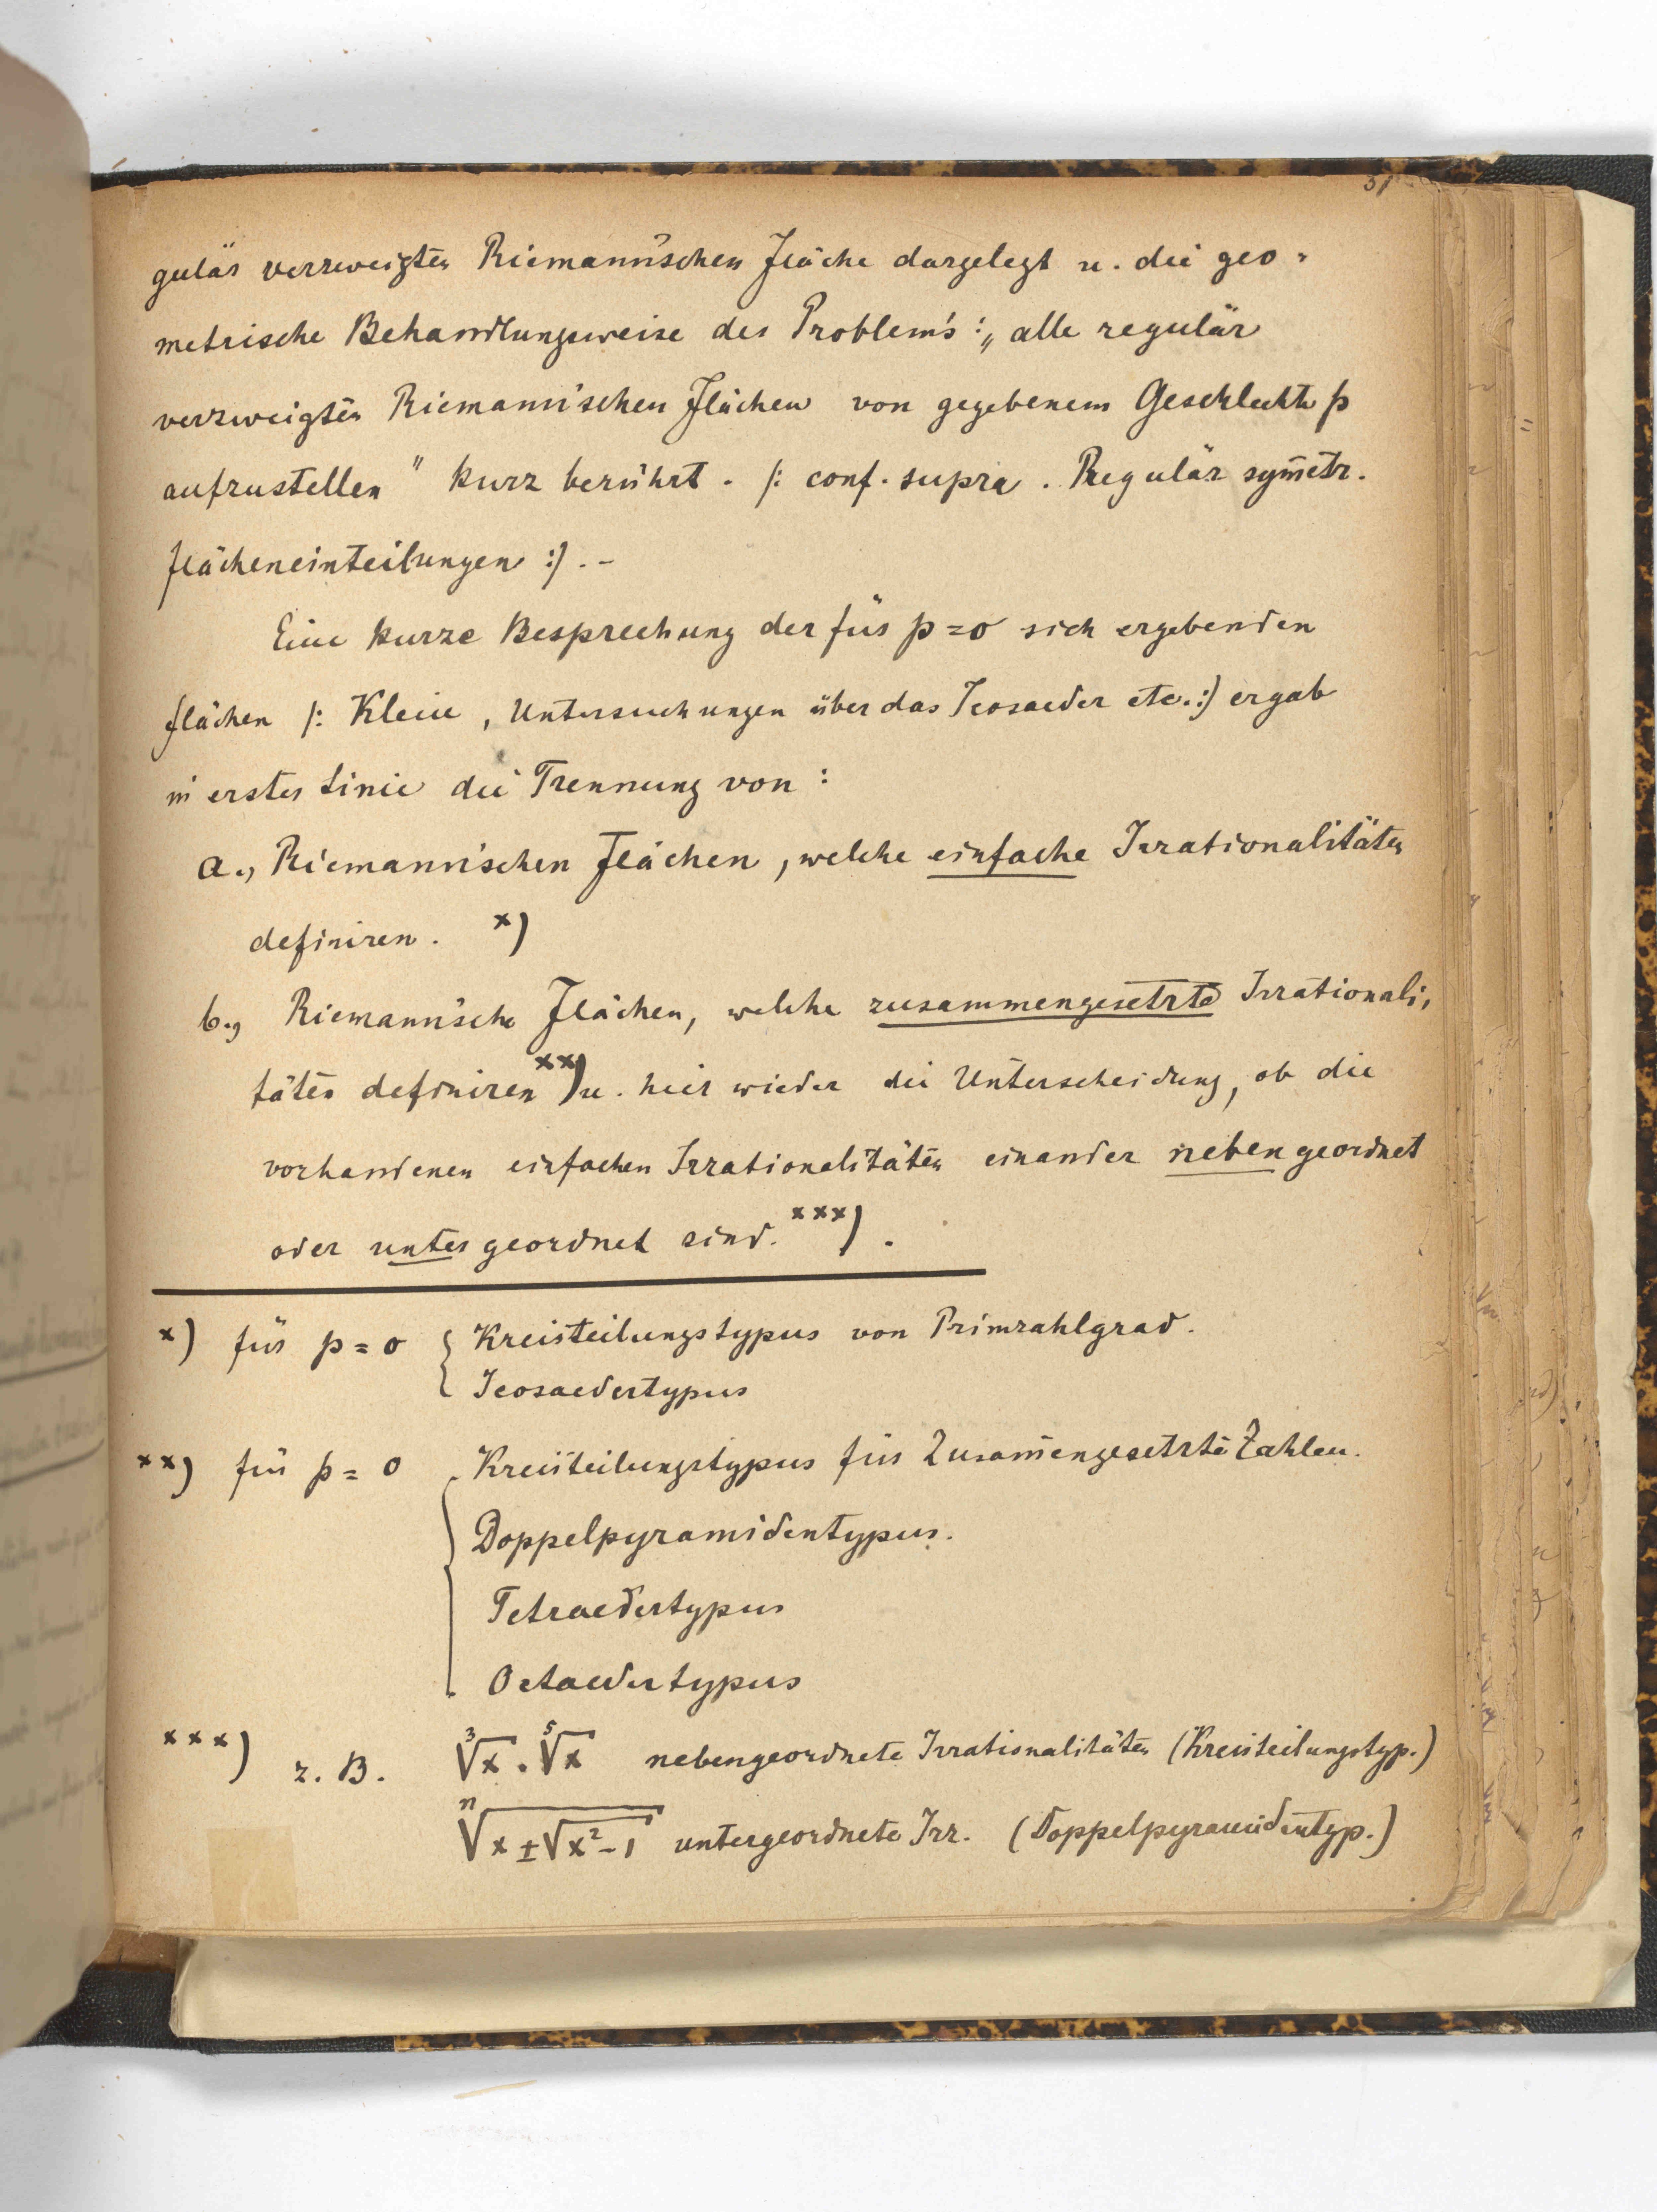 31
gulär verzweigten Riemann'schen Fläche dargelegt u. die geo-
metrische Behandlungsweise des Problem's: „alle regulär
verzweigten Riemann'schen Flächen von gegebenem Geschlechte p
aufzustellen" kurz berührt. /: conf. supra. Regulär sym̅etr.
Flächeneinteilungen :/. -
Eine kurze Besprechung der für p=0 sich ergebenden
Flächen /: Klein, Untersuchungen über das Icosaeder etc. :/ ergab
in erster Linie die Trennung von:
a., Riemann'schen Flächen, welche einfache Irrationalitäten
definiren. x)
b., Riemann'sche Flächen, welche zusammengesetzte Irrationali-
täten definiren xx) u. hier wieder die Unterscheidung, ob die
vorhandenen einfachen Irrationalitäten einander nebengeordnet
oder untergeordnet sind. xxx).
x) für p=0 { Kreisteilungstypus von Primzahlgrad.
Icosaedertypus
xx) für p=0 { Kreisteilungstypus für Zusam̅engesetzte Zahlen.
Doppelpyramidentypus.
Tetraedertypus
Octaedertypus
xxx) z. B. ∛x . ⁵√x nebengeordnete Irrationalitäten (Kreisteilungstyp.)
ⁿ√(x ± √(x²-1)) untergeordnete Irr. (Doppelpyramidentyp.)